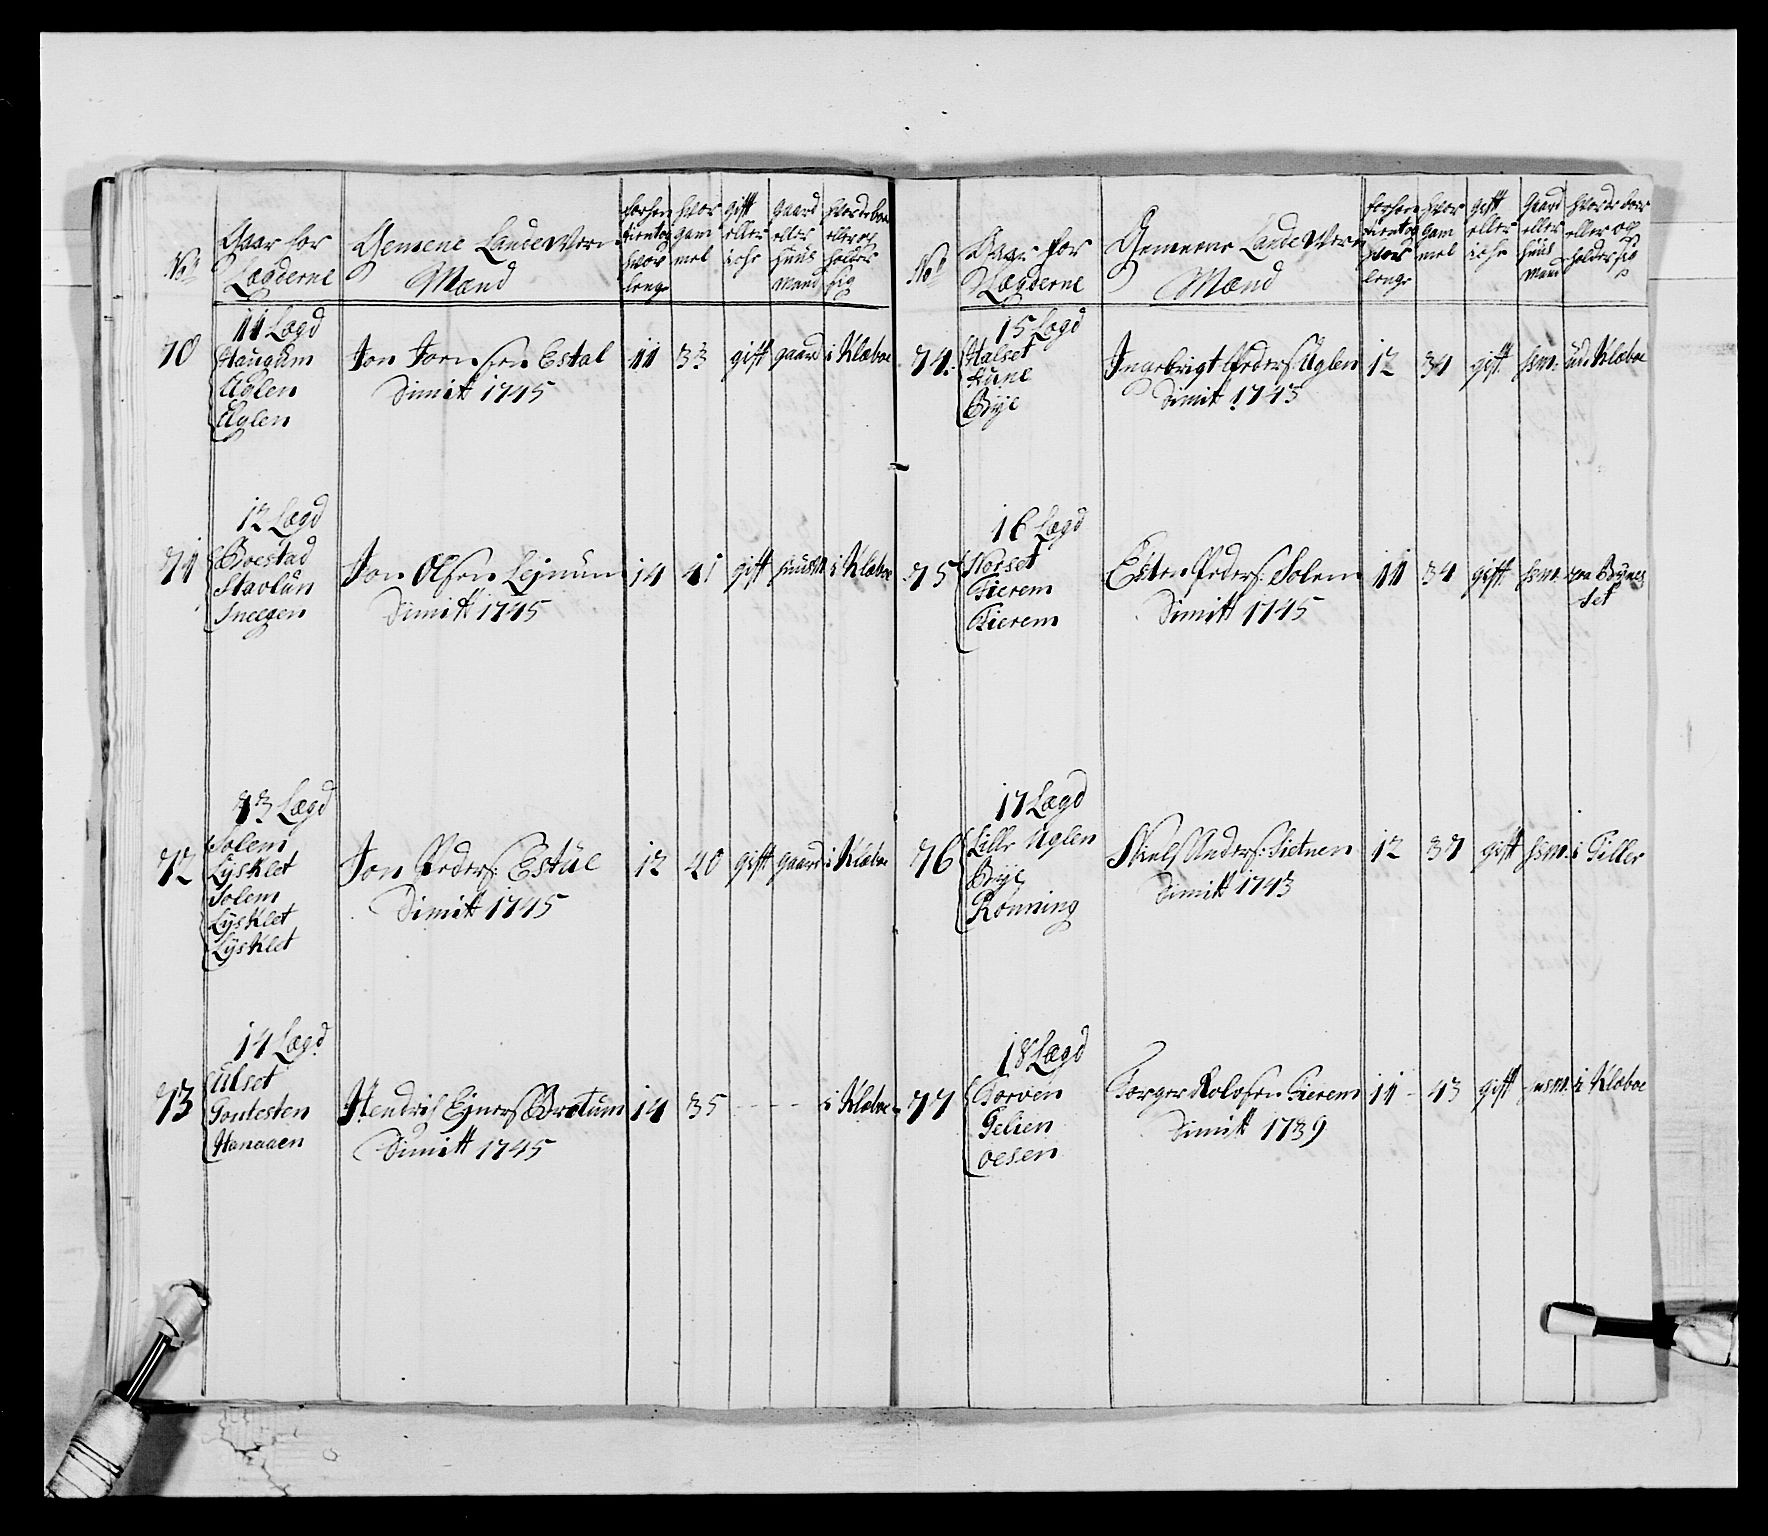 No
Gaar for
Lægderne
Gemene Lande Wern
Mænd
forhen
tient og
hvor
lenge
hvor
gam
mel
gift
eller
iche
gaard
eller
huus
mand
hvor de boe
eller op
holder
sig
70
11 Lægd
Haugum
Uglen
Uglen
Jon Jonsen Estal
Dimit 1745
11
33
gift
gaard
i Klæboe
71
12 Lægd
Boestad
Staolun
Sneegen
Jon Olsen Lejnum
Dimitt 1745
14
41
gift
huusm
i Klæboe
72
13 Lægd
Solem
Lysklet
Solem
Lysklet
Lysklet
Jon Peders: Estûe
Dimitt 1745
12
40
gift
gaard
i Klæboe
73
14 Lægd
Ulset
Tontesten
Hanaaen
Hendric Eyners: Brøtum
Dimitt 1745
14
35
i Klæboe
No
Gaar for
Lægderne
Gemeene Lande Wern
Mænd
forhen
tient og
hvor
lenge
hvor
gam
mel
gift
eller
iche
gaard
eller
huus
mand
hvor de boer
eller op
holder sig
74.
15 Lægd
Halset
Hune
Byje
Ingebrigt Peders: Uglen
Dimit 1743
12
34
gift
hsm:
ud i Klæboe
75
16 Lægd
Forset
Tierem
Tierem
Esten Peders: Solem
Dimitt 1745
11
34
gift
hsm:
paa Bynes
set
76
17 Lægd
Lille Uglen
Byje
Rønning
Niels Anders: Sietnen
Dimitt 1743
12
37
gift
hsm:
i Tiller
77
18 Lægd
Torven
Tellen
oesen
Torger Rolofsen Tierem
Dimitt 1739
11
43
gift
husm:
i Klæboe